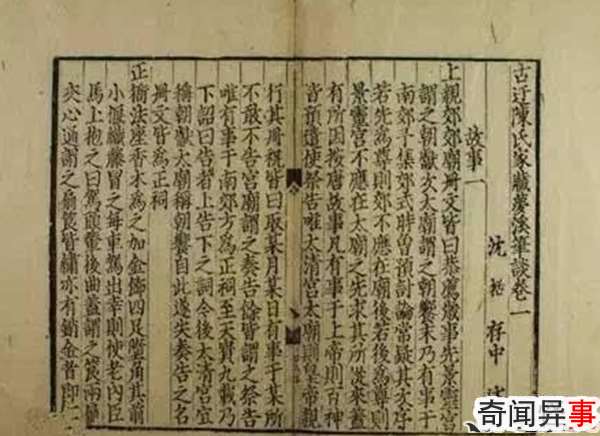 古迂陳氏家藏夢溪筆談卷一
沈括存中
故事一
上親郊郊廟冊文皆曰恭薦歲事先景靈宮
謂之朝獻次太廟謂之朝饗末乃有事于
南郊予集郊式時曾預討論常疑其次序
若先為尊則郊不應在廟後若後為尊則
景靈宮不應在太廟之先求其所從來蓋
有所因按唐故事凡有事于上帝則百神
皆預遣使祭告唯太清宮太廟則皇帝親
行其冊祝皆曰取某月某日有事于某所
不敢不告宮廟謂之奏告餘皆謂之祭告
唯有事于南郊方為正祠至天寶九載乃
下詔曰告者上告下之詞今後太清宮宜
稱朝獻太廟稱朝饗自此遂失奏告之名
冊文皆為正祠
正衙法座香木為之加金飾四足墮角其前
小偃織藤冒之每車駕出幸則使老內臣
馬上抱之曰駕頭輦後曲蓋謂之筤兩扇
夾心通謂之扇筤皆繡亦有銷金者即
奇闻异事